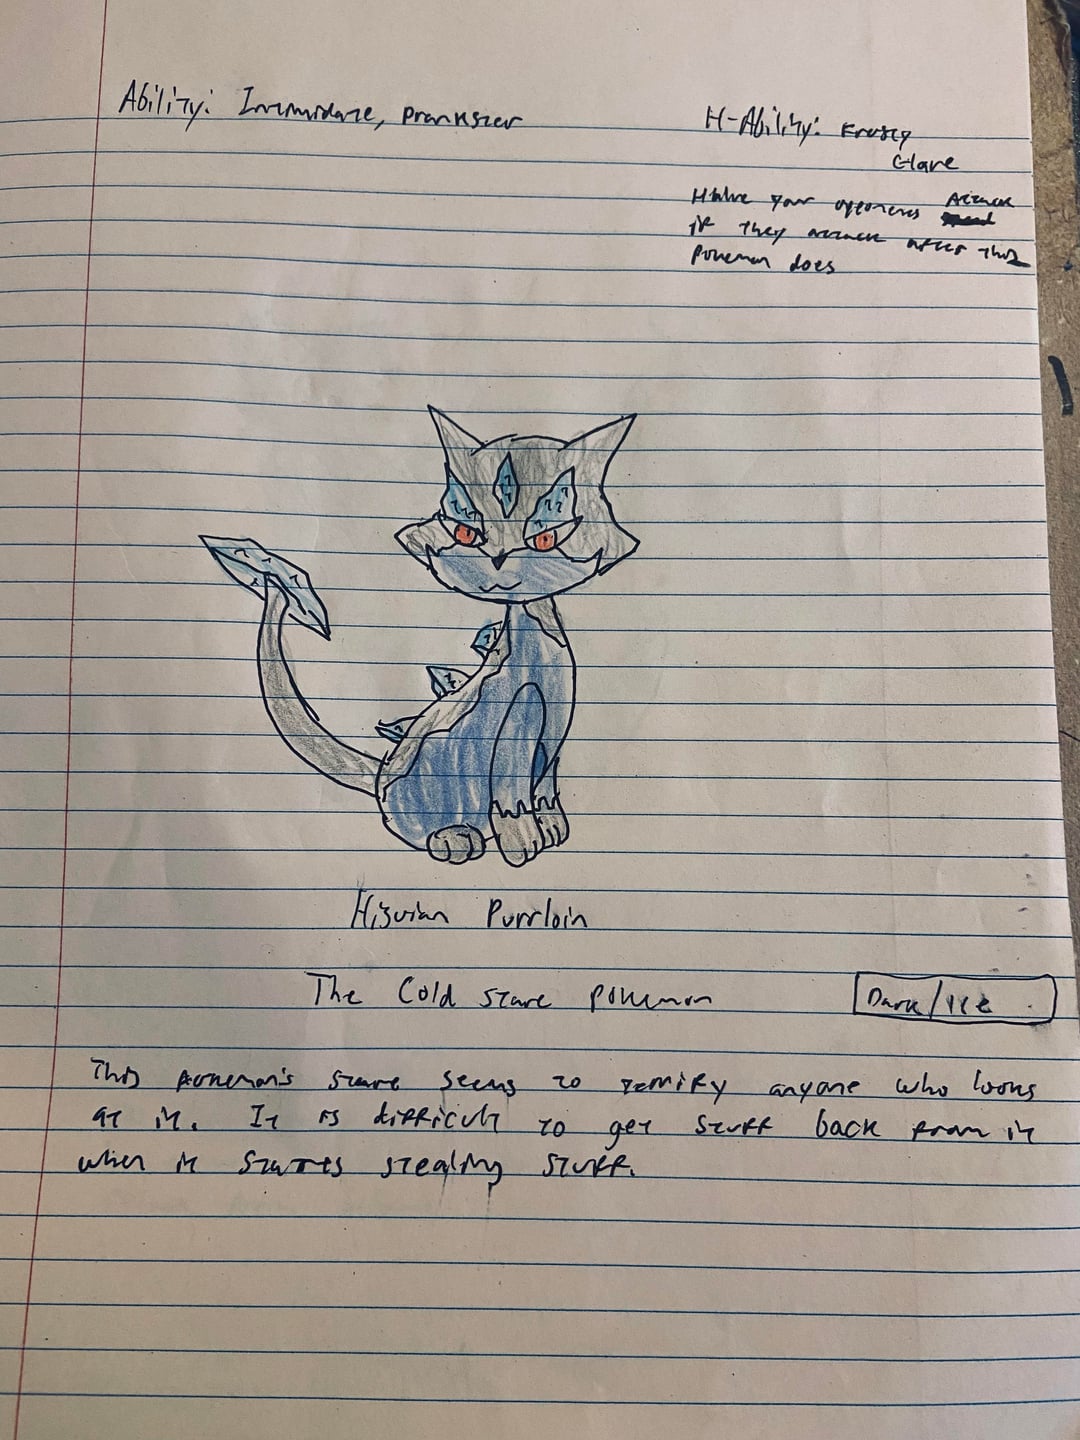 Ability: Intimidate, Prankster
H-Ability: Frosty
Glare
Halve your opponents Attack
if they attack after this
Pokemon does
Hisuian Purrloin
The Cold stare Pokemon
Dark/Ice
This Pokemon's stare seems to terrify anyone who looks
at it. It is difficult to get stuff back from it
when it starts stealing stuff.